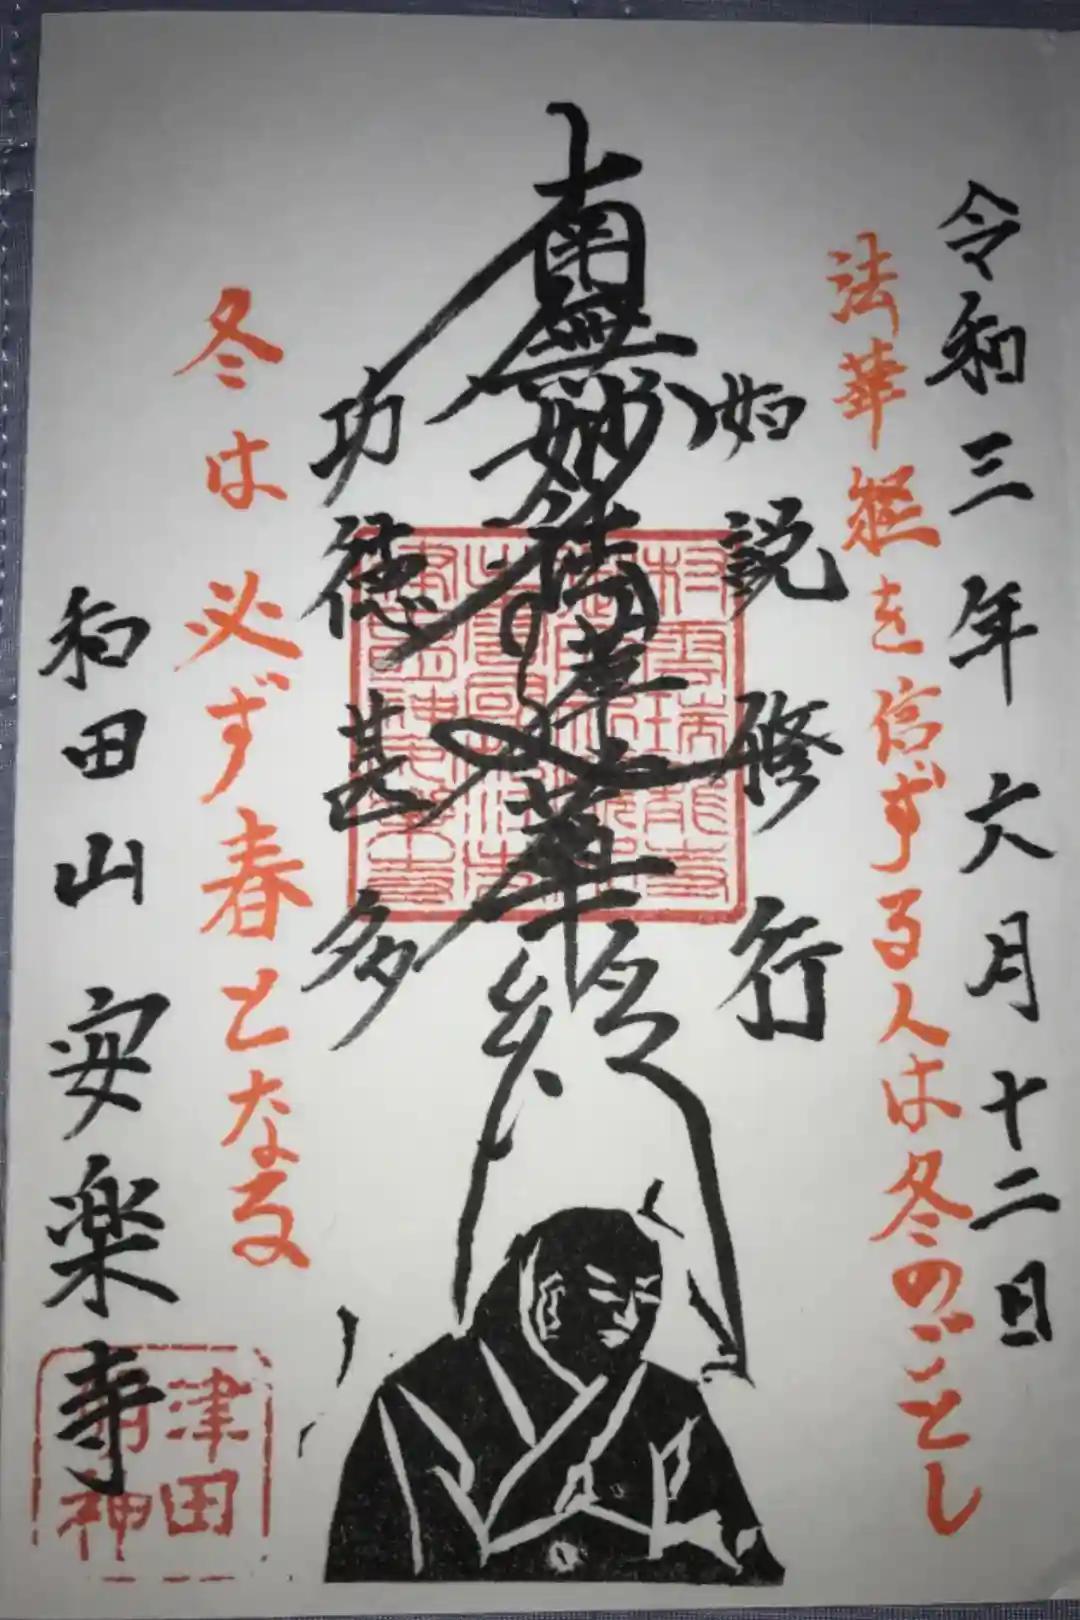 令和三年六月十二日
法華経を信ずる人は冬のごとし
如説修行
南無妙法蓮華経
功徳甚多
冬は必ず春となる
和田山安楽寺
津田
神